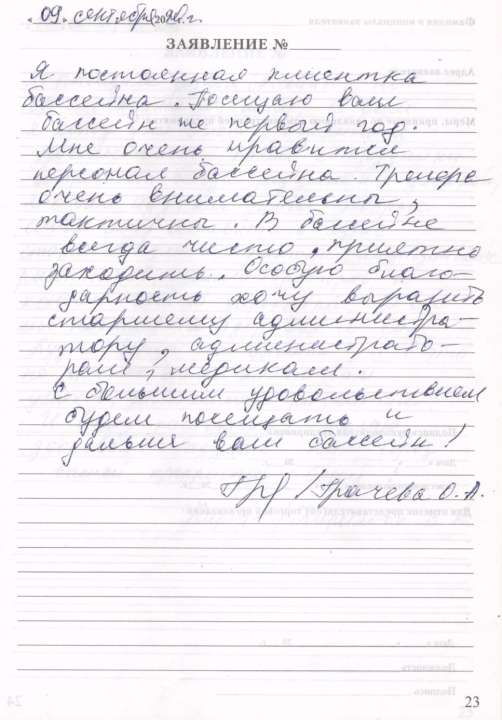 09. сентября 20 г.
ЗАЯВЛЕНИЕ №
Я постоянная клиентка
бассейна. Посещаю ваш
бассейн не первый год.
Мне очень нравится
персонал бассейна. Тренера
очень внимательны,
тактичны. В бассейне
всегда чисто, приятно
заходить. Особую благо-
дарность хочу выразить
старшему администра-
тору, администрато-
рам, медикам.
С большим удовольствием
будем посещать и
дальше ваш бассейн!
/Грачева О.А.
23